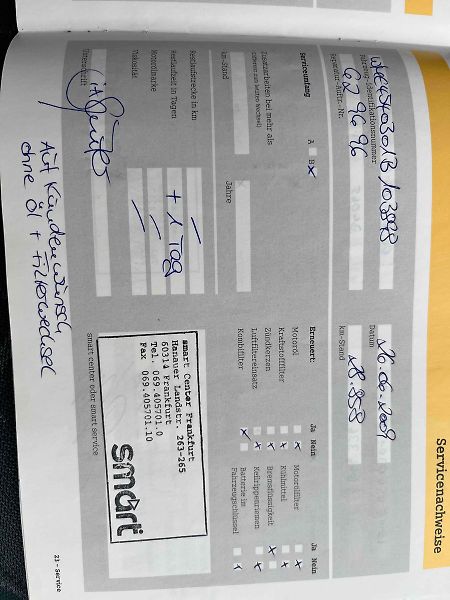 Servicenachweise
Fahrzeug-Identifikationsnummer
Datum
26.06.2009
Reparatur-Auftr.-Nr.
629696
km-Stand
28.898
Serviceumfang
A B x
Erneuert:
Ja Nein
Ja Nein
Motoröl x
Motorölfilter x
Zusatzarbeiten bei mehr als
Kraftstofffilter x
Kühlmittel x
Zündkerzen x
Bremsflüssigkeit x
km-Stand
Jahre
Luftfiltereinsatz x
Keilrippenriemen x
Kombifilter x
Batterie im
Fahrzeugschlüssel x
Restlaufstrecke in km
—
Restlaufzeit in Tagen
+ 1 Tag
Motorölmarke
—
Viskosität
—
smart Center Frankfurt
Hanauer Landstr. 263-265
60314 Frankfurt
Tel. 069.405701.0
Fax 069.405701.10
smart
Unterschrift
smart center oder smart service
Auf Kundenwunsch
ohne Öl + Filterwechsel
21 - Service